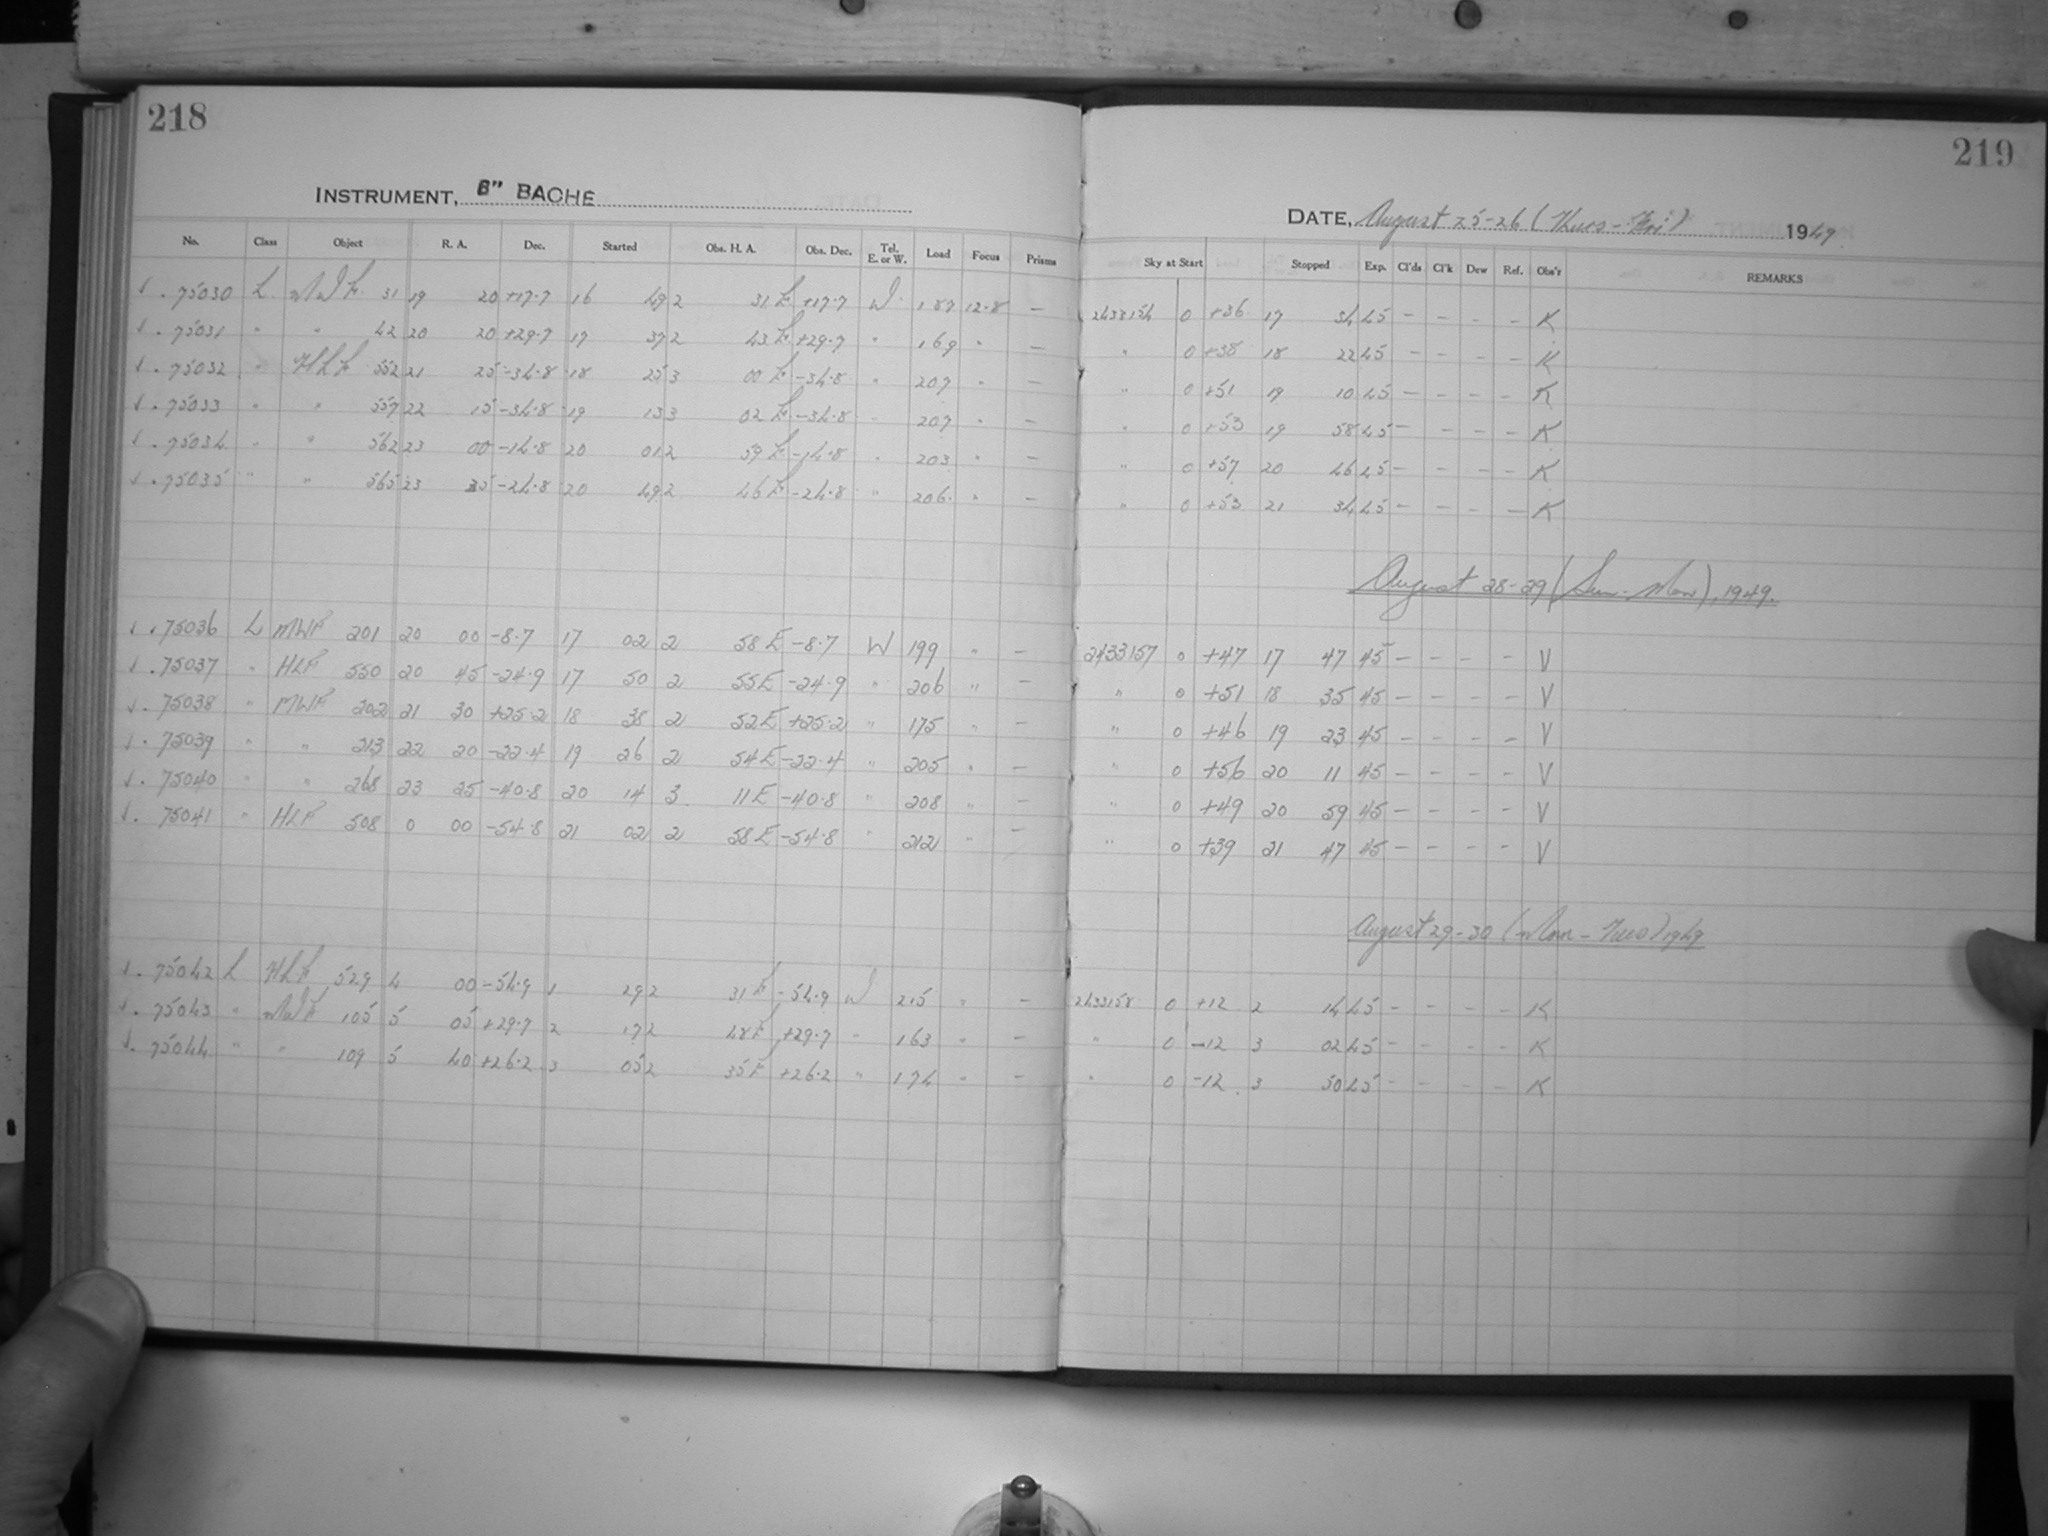 218
INSTRUMENT, 8" BACHE
No. Class Object R. A. Dec. Started Obs. H. A. Obs. Dec. Tel. E. or W. Load Focus Prisms
√ . 75030 L MWF 31 19 20 +17.7 16 49 2 31 E +17.7 W 187 12.8 —
√ . 75031 " " 42 20 20 +29.7 17 37 2 43 E +29.7 " 169 " —
√ . 75032 " HLF 552 21 25 -34.8 18 25 3 00 E -34.8 " 207 " —
√ . 75033 " " 557 22 15 -34.8 19 13 3 02 E -34.8 " 207 " —
√ . 75034 " " 562 23 00 -14.8 20 01 2 59 E -14.8 " 203 " —
√ . 75035 " " 565 23 35 -24.8 20 49 2 46 E -24.8 " 206 " —
√ . 75036 L MWF 201 20 00 -8.7 17 02 2 58 E -8.7 W 199 " —
√ . 75037 " HLF 550 20 45 -24.9 17 50 2 55 E -24.9 " 206 " —
√ . 75038 " MWF 202 21 30 +25.2 18 38 2 52 E +25.2 " 175 " —
√ . 75039 " " 213 22 20 -22.4 19 26 2 54 E -22.4 " 205 " —
√ . 75040 " " 268 23 25 -40.8 20 14 3 11 E -40.8 " 208 " —
√ . 75041 " HLF 508 0 00 -54.8 21 02 2 58 E -54.8 " 212 " —
√ . 75042 L HLF 529 4 00 -54.9 1 29 2 31 E -54.9 W 215 " —
√ . 75043 " MWF 105 5 05 +29.7 2 17 2 48 E +29.7 " 163 " —
√ . 75044 " " 109 5 40 +26.2 3 05 2 35 E +26.2 " 174 " —
219
DATE, August 25-26 (Thurs - Fri) 1949
Sky at Start Stopped Exp. Cl'ds Cl'k Dew Ref. Obs'r REMARKS
2433154 0 +36 17 34 45 — — — — K
" 0 +38 18 22 45 — — — — K
" 0 +51 19 10 45 — — — — K
" 0 +53 19 58 45 — — — — K
" 0 +57 20 46 45 — — — — K
" 0 +53 21 34 45 — — — — K
August 28-29 (Sun - Mon), 1949.
2433157 0 +47 17 47 45 — — — — V
" 0 +51 18 35 45 — — — — V
" 0 +46 19 23 45 — — — — V
" 0 +56 20 11 45 — — — — V
" 0 +49 20 59 45 — — — — V
" 0 +39 21 47 45 — — — — V
August 29-30 (Mon - Tues) 1949
2433158 0 +12 2 14 45 — — — — K
" 0 -12 3 02 45 — — — — K
" 0 -12 3 50 45 — — — — K